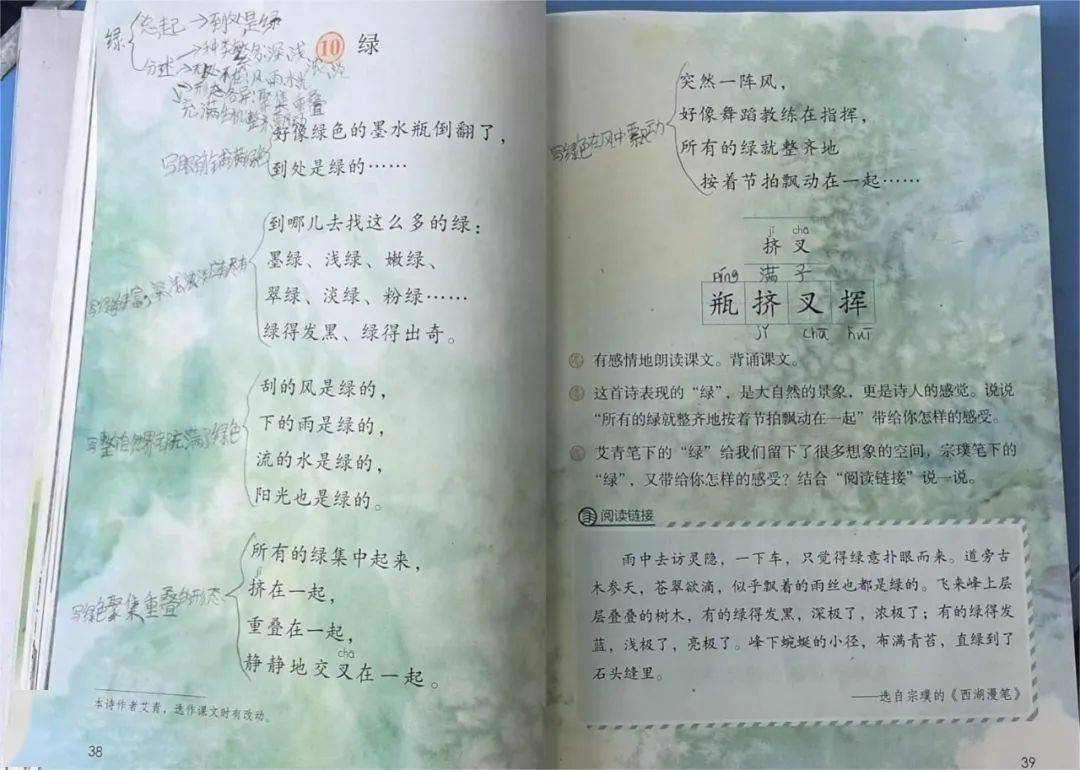 绿
总起→到处是绿
分述→种类繁多:深浅浓淡
风雨水
重叠
充满生机
10 绿
好像绿色的墨水瓶倒翻了，
到处是绿的……
到哪儿去找这么多的绿：
墨绿、浅绿、嫩绿、
翠绿、淡绿、粉绿……
绿得发黑、绿得出奇。
刮的风是绿的，
下的雨是绿的，
流的水是绿的，
阳光也是绿的。
写整个自然界都充满了绿色
所有的绿集中起来，
jǐ
挤在一起，
重叠在一起，
chā
静静地交叉在一起。
写绿色聚集重叠的形态
本诗作者艾青，选作课文时有改动。
38
突然一阵风，
好像舞蹈教练在指挥，
所有的绿就整齐地
按着节拍飘动在一起……
写绿色在风中飘动
jǐ chā
挤 叉
píng 满 子
瓶 挤 叉 挥
jǐ chā huī
有感情地朗读课文。背诵课文。
这首诗表现的“绿”，是大自然的景象，更是诗人的感觉。说说
“所有的绿就整齐地按着节拍飘动在一起”带给你怎样的感受。
艾青笔下的“绿”给我们留下了很多想象的空间，宗璞笔下的
“绿”，又带给你怎样的感受？结合“阅读链接”说一说。
阅读链接
雨中去访灵隐，一下车，只觉得绿意扑眼而来。道旁古
木参天，苍翠欲滴，似乎飘着的雨丝也都是绿的。飞来峰上层
层叠叠的树木，有的绿得发黑，深极了，浓极了；有的绿得发
蓝，浅极了，亮极了。峰下蜿蜒的小径，布满青苔，直绿到了
石头缝里。
——选自宗璞的《西湖漫笔》
39